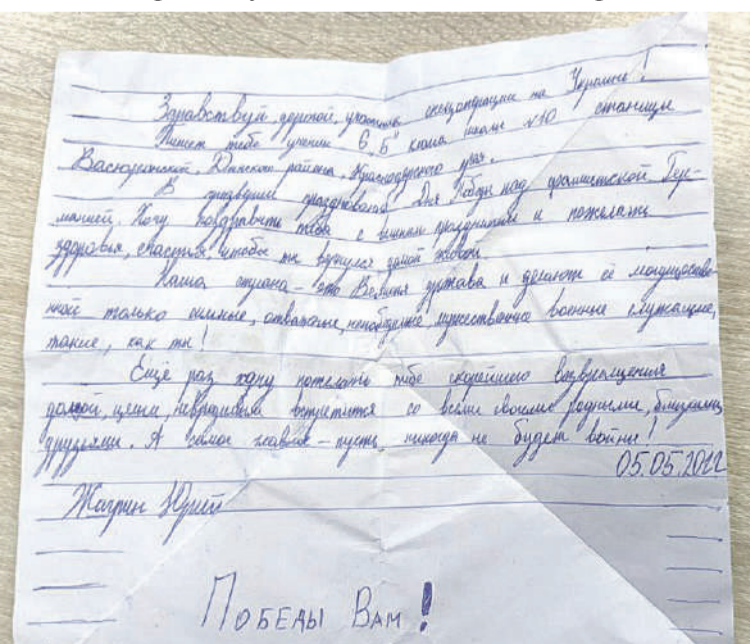 Здравствуй, дорогой, участник спецоперации на Украине!
Пишет тебе ученик 6 „Б" класса школы №10 станицы
Васюринской, Динского района, Краснодарского края.
В преддверии празднования Дня Победы над фашистской Гер-
манией. Хочу поздравить тебя с этим праздником и пожелать
здоровья, счастья, чтобы ты вернулся домой живой.
Наша страна - это Великая держава и делают её могуществе-
нной только сильные, отважные, непобедимые, мужественные военные служащие,
такие, как ты!
Ещё раз хочу пожелать тебе скорейшего возвращения
домой, целым, невредимым встретится со всеми своими родными, близкими
друзьями. А самое главное - пусть никогда не будет войны!
05.05.2022
Юрий
Победы Вам!